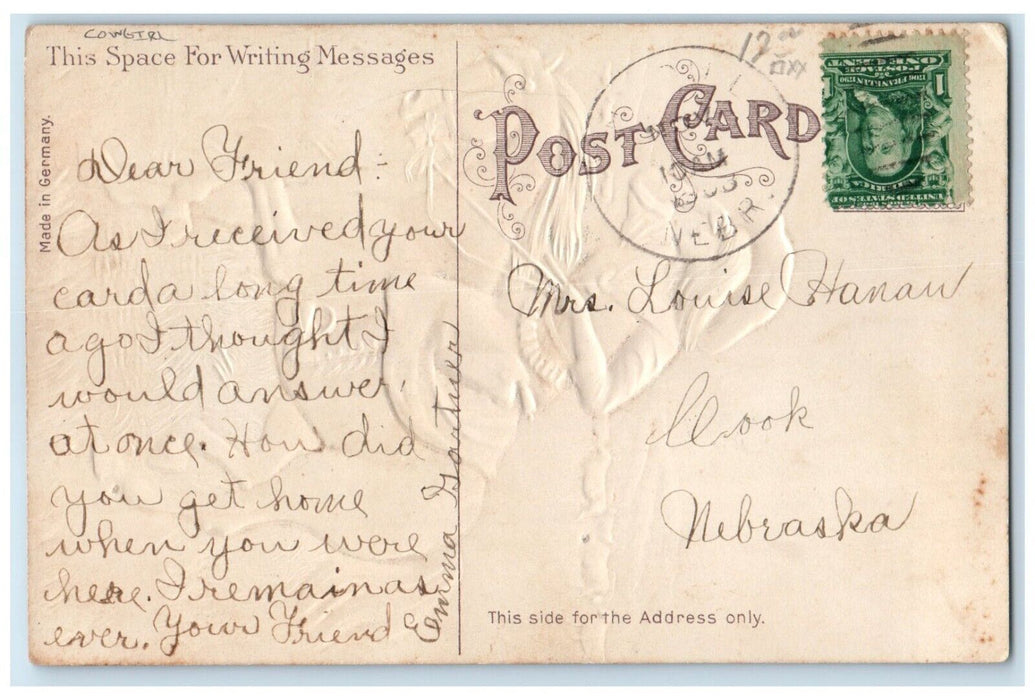 COWGIRL
This Space For Writing Messages
Made in Germany.
Dear Friend:
As I received your
card a long time
ago I thought I
would answer
at once. How did
you get home
when you were
here. I remain as
ever. Your Friend
Emma
POST CARD
10 AM
NEBR.
1706 FRANKLIN 1790
POSTAGE
ONE CENT
1
1
UNITED STATES OF
AMERICA
Mrs. Louise Hanau
Cook
Nebraska
This side for the Address only.